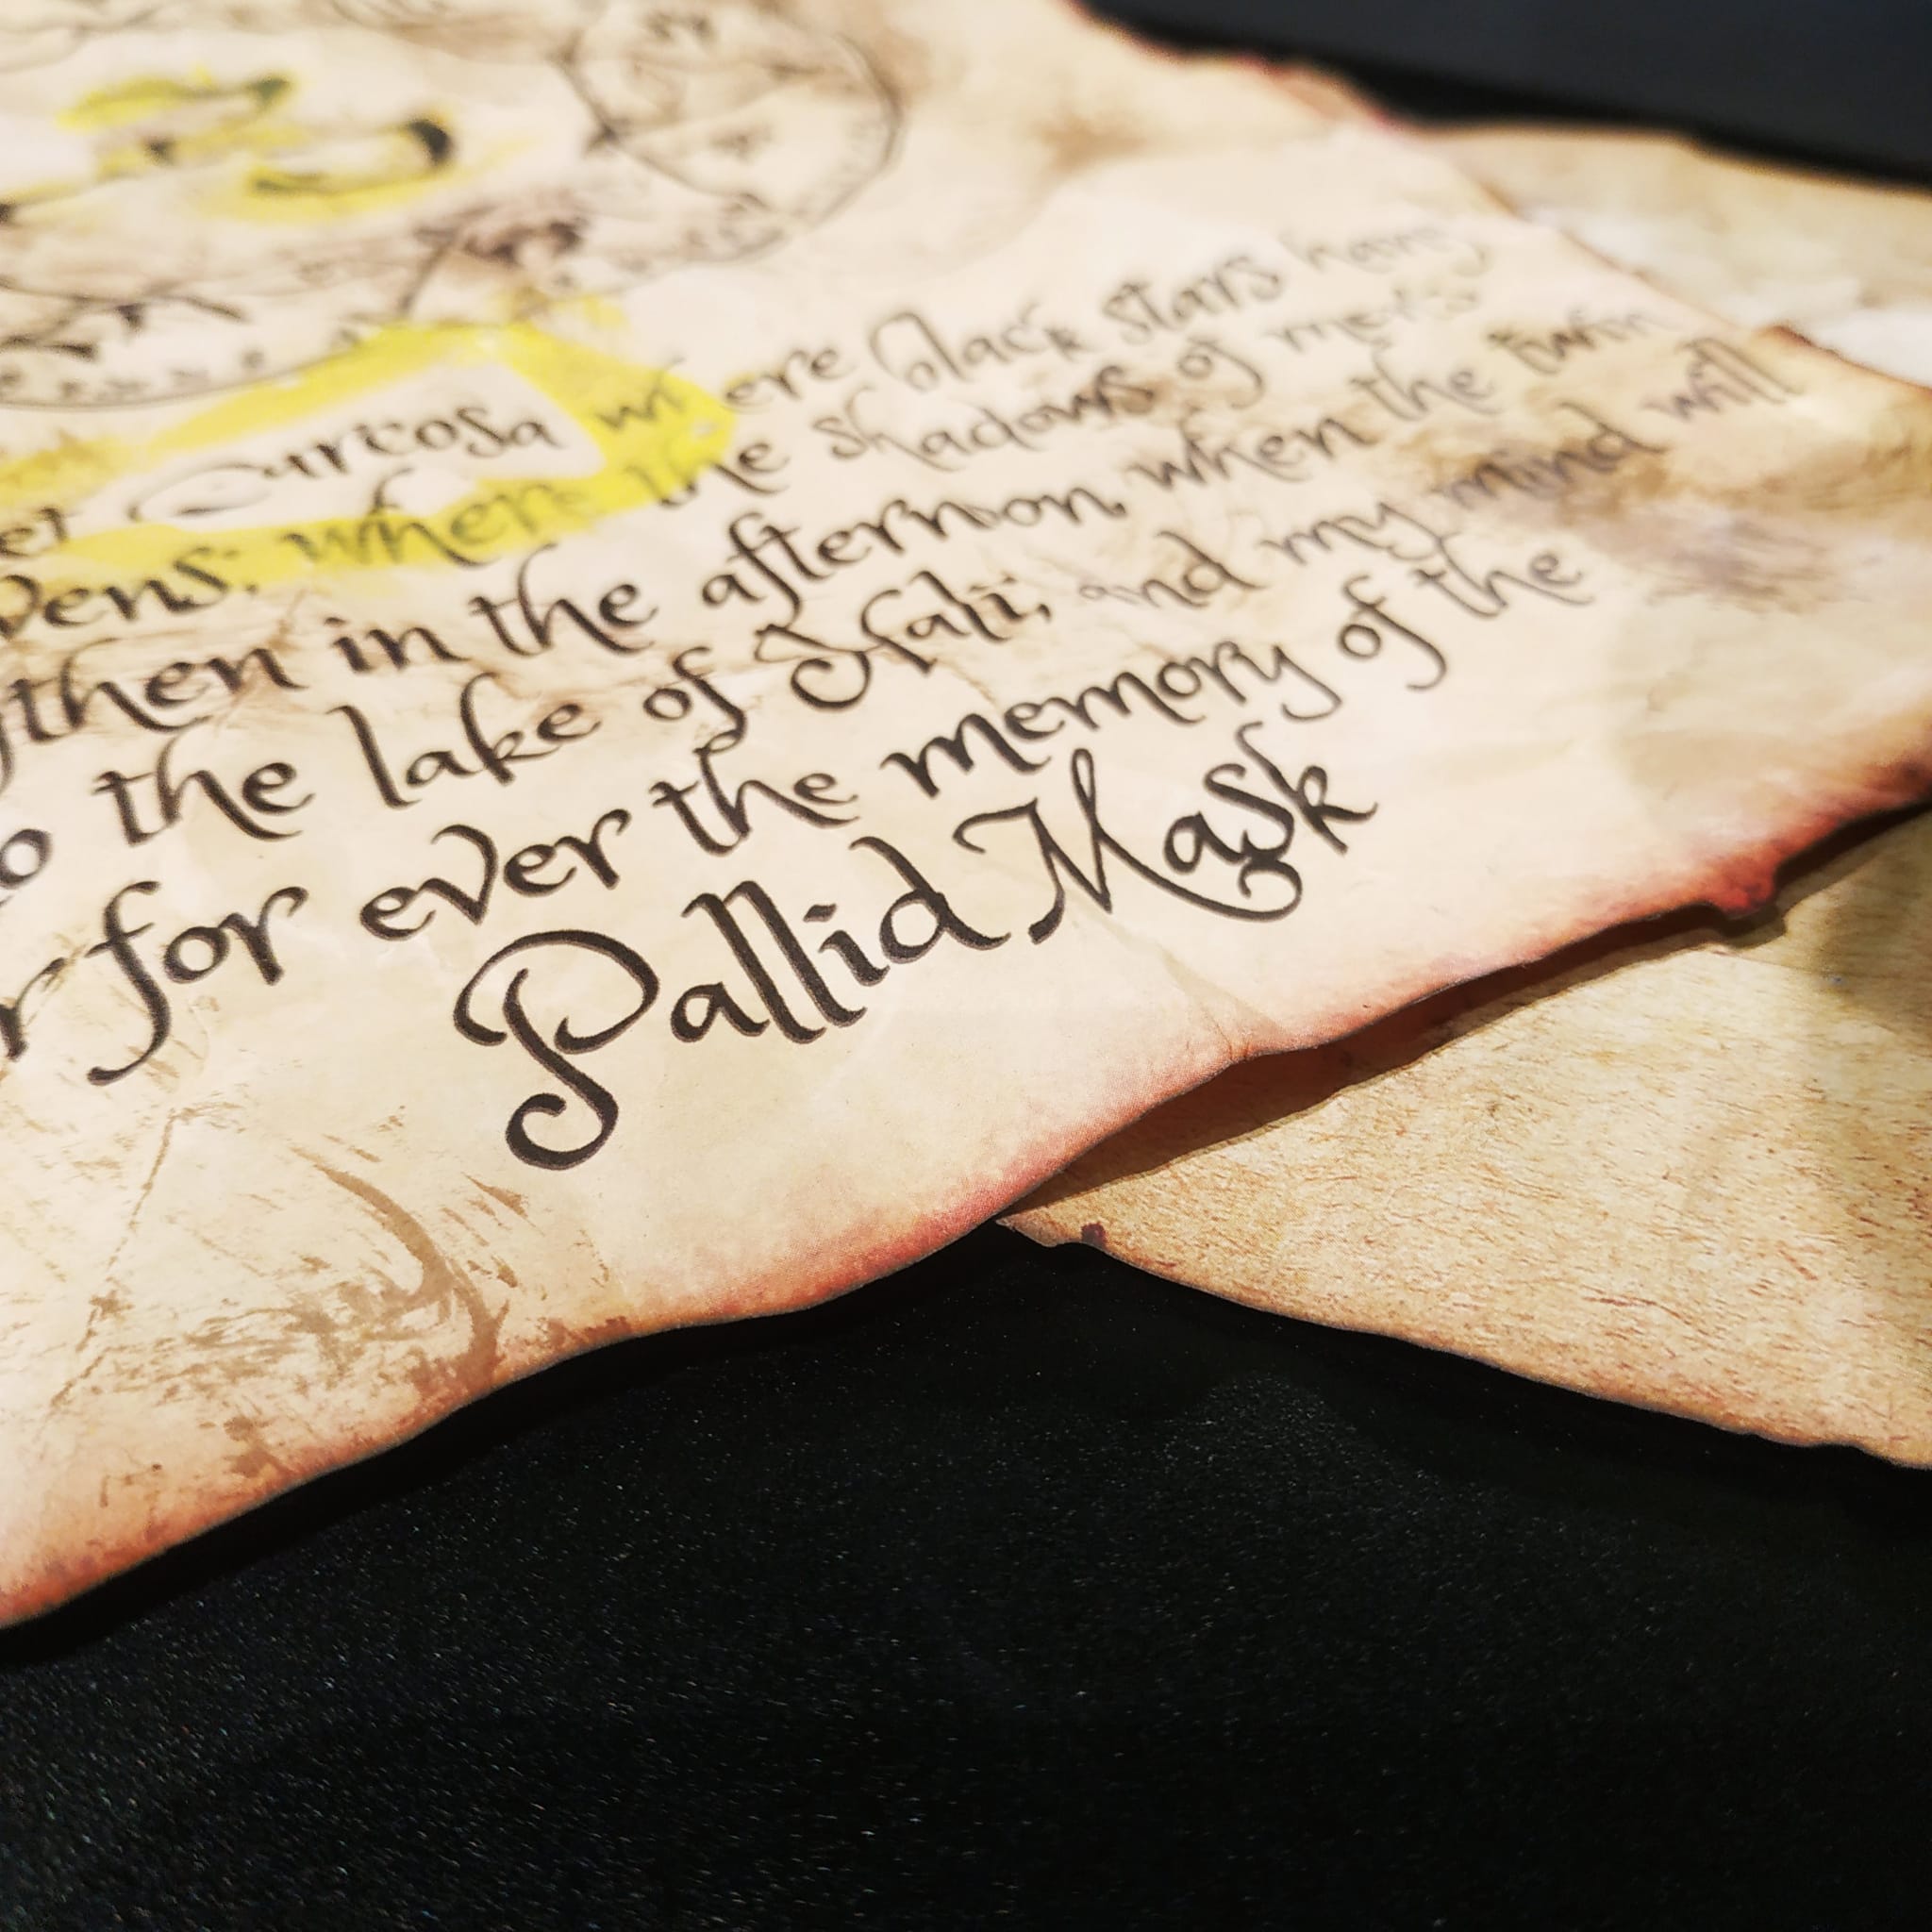 Carcosa where black stars hang
vens; where the shadows of men's
then in the afternoon, when the twin
the lake of Hali; and my mind will
for ever the memory of the
Pallid Mask